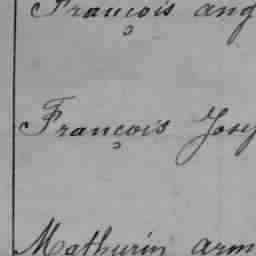 François ang
François Jose
Mathurin arm